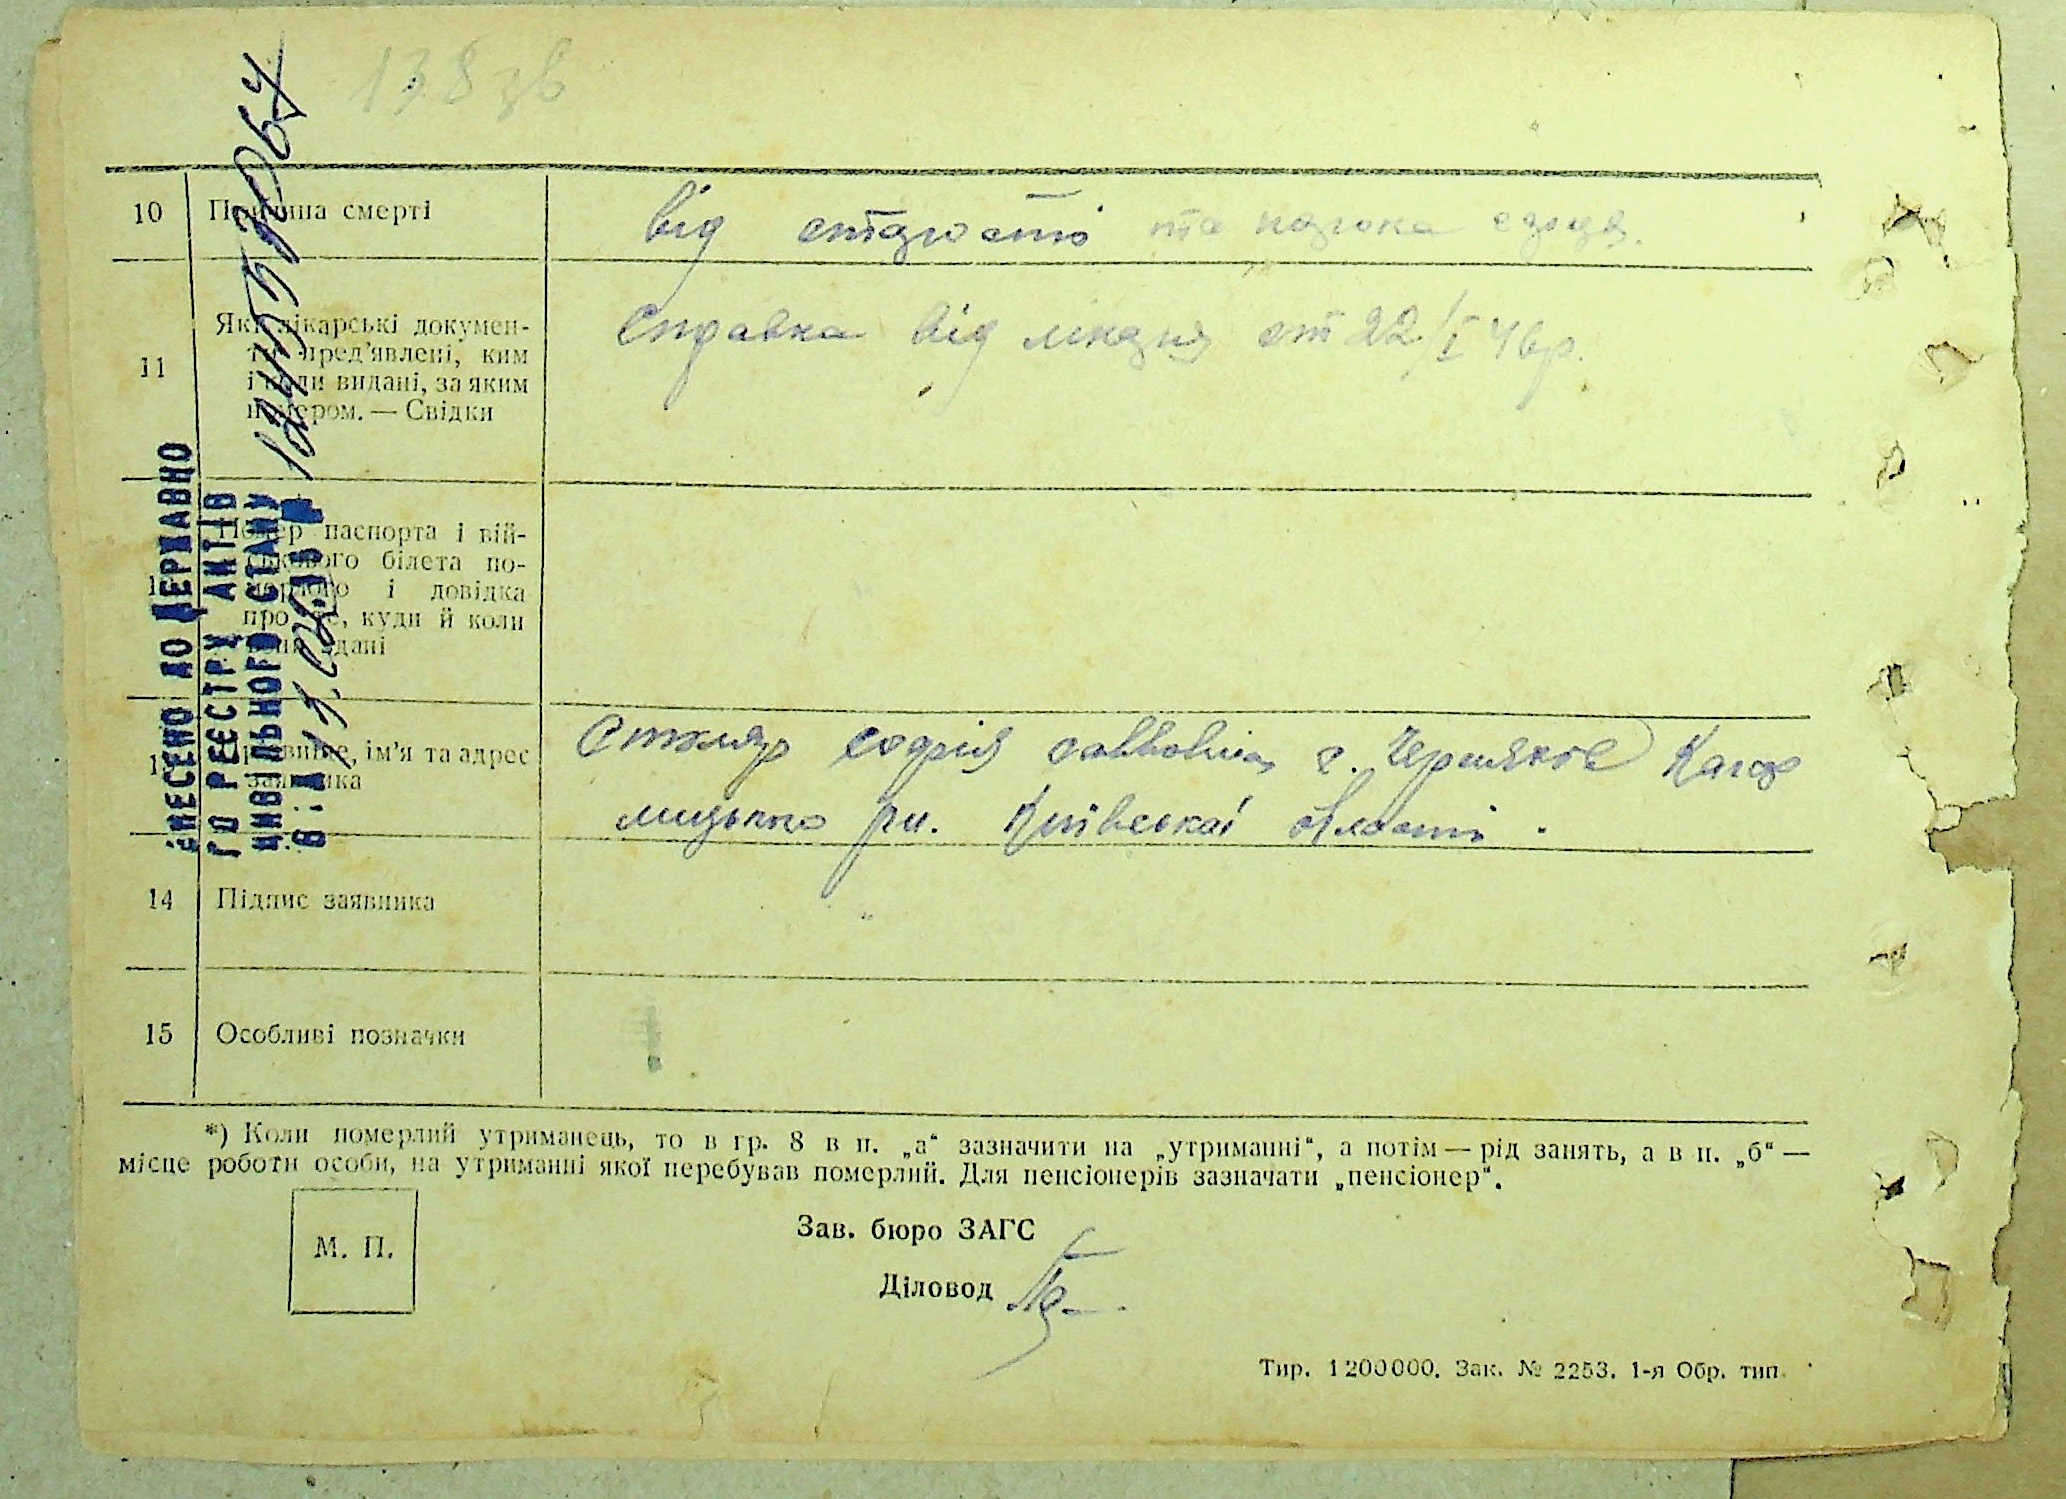 138 зв
10 Причина смерті
від старості та
11 Які лікарські докумен-
ти пред'явлені, ким
і коли видані, за яким
номером. — Свідки
Справка від лікаря от 22/I 46р.
Номер паспорта і вій-
ськового білета по-
мерлого і довідка
про те, куди й коли
вони здані
Прізвище, ім'я та адрес
заявника
Столяр Софія с.
р-н. Київської області.
14 Підпис заявника
15 Особливі позначки
*) Коли померлий утриманець, то в гр. 8 в п. „а“ зазначити на „утриманні“, а потім — рід занять, а в п. „б“ —
місце роботи особи, на утриманні якої перебував померлий. Для пенсіонерів зазначати „пенсіонер“.
М. П.
Зав. бюро ЗАГС
Діловод
Тир. 1200000. Зак. № 2253. 1-я Обр. тип.
ВНЕСЕНО ДО ДЕРЖАВНО
ГО РЕЄСТРУ АКТІВ
ЦИВІЛЬНОГО СТАНУ